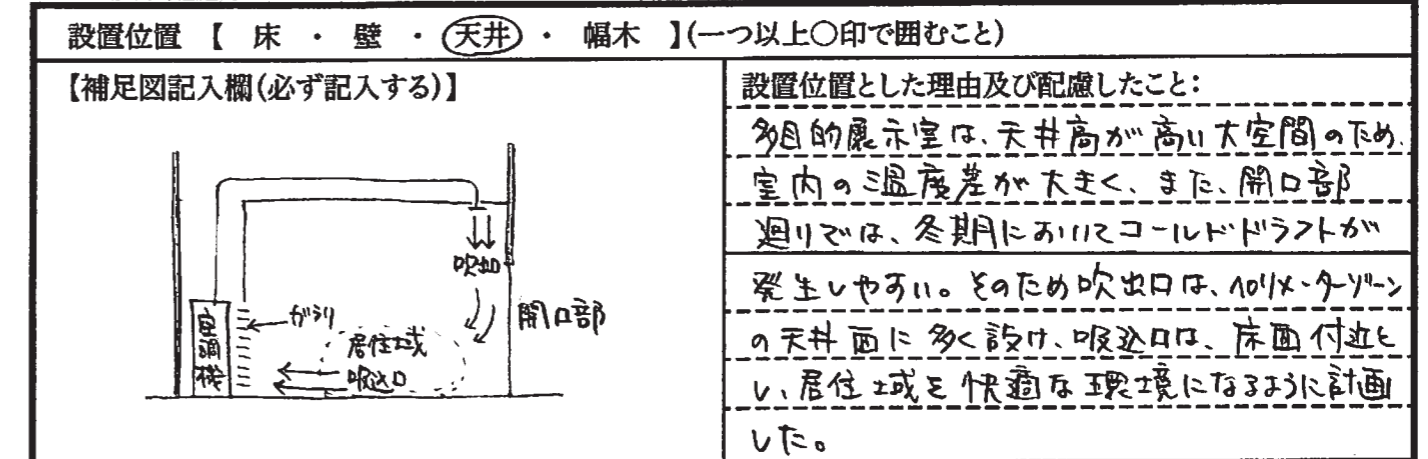 設置位置 【 床 ・ 壁 ・ 天井 ・ 幅木 】(一つ以上○印で囲むこと)
【補足図記入欄(必ず記入する)】
吹出
開口部
がらり
居住域
吸込口
空調機
設置位置とした理由及び配慮したこと:
多目的展示室は、天井高が高い大空間のため、
室内の温度差が大きく、また、開口部
廻りでは、冬期においてコールドドラフトが
発生しやすい。そのため吹出口は、ペリメーターゾーン
の天井面に多く設け、吸込口は、床面付近と
し、居住域を快適な環境になるように計画
した。